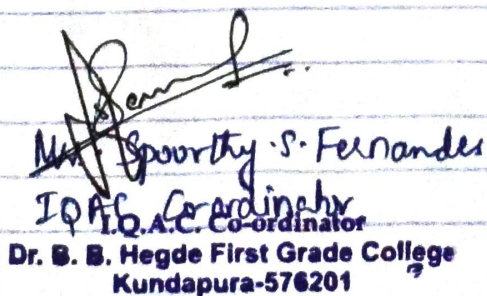 Spoorthy .S. Fernandes
IQAC Co-ordinator
I.Q.A.C. Co-ordinator
Dr. B. B. Hegde First Grade College
Kundapura-576201